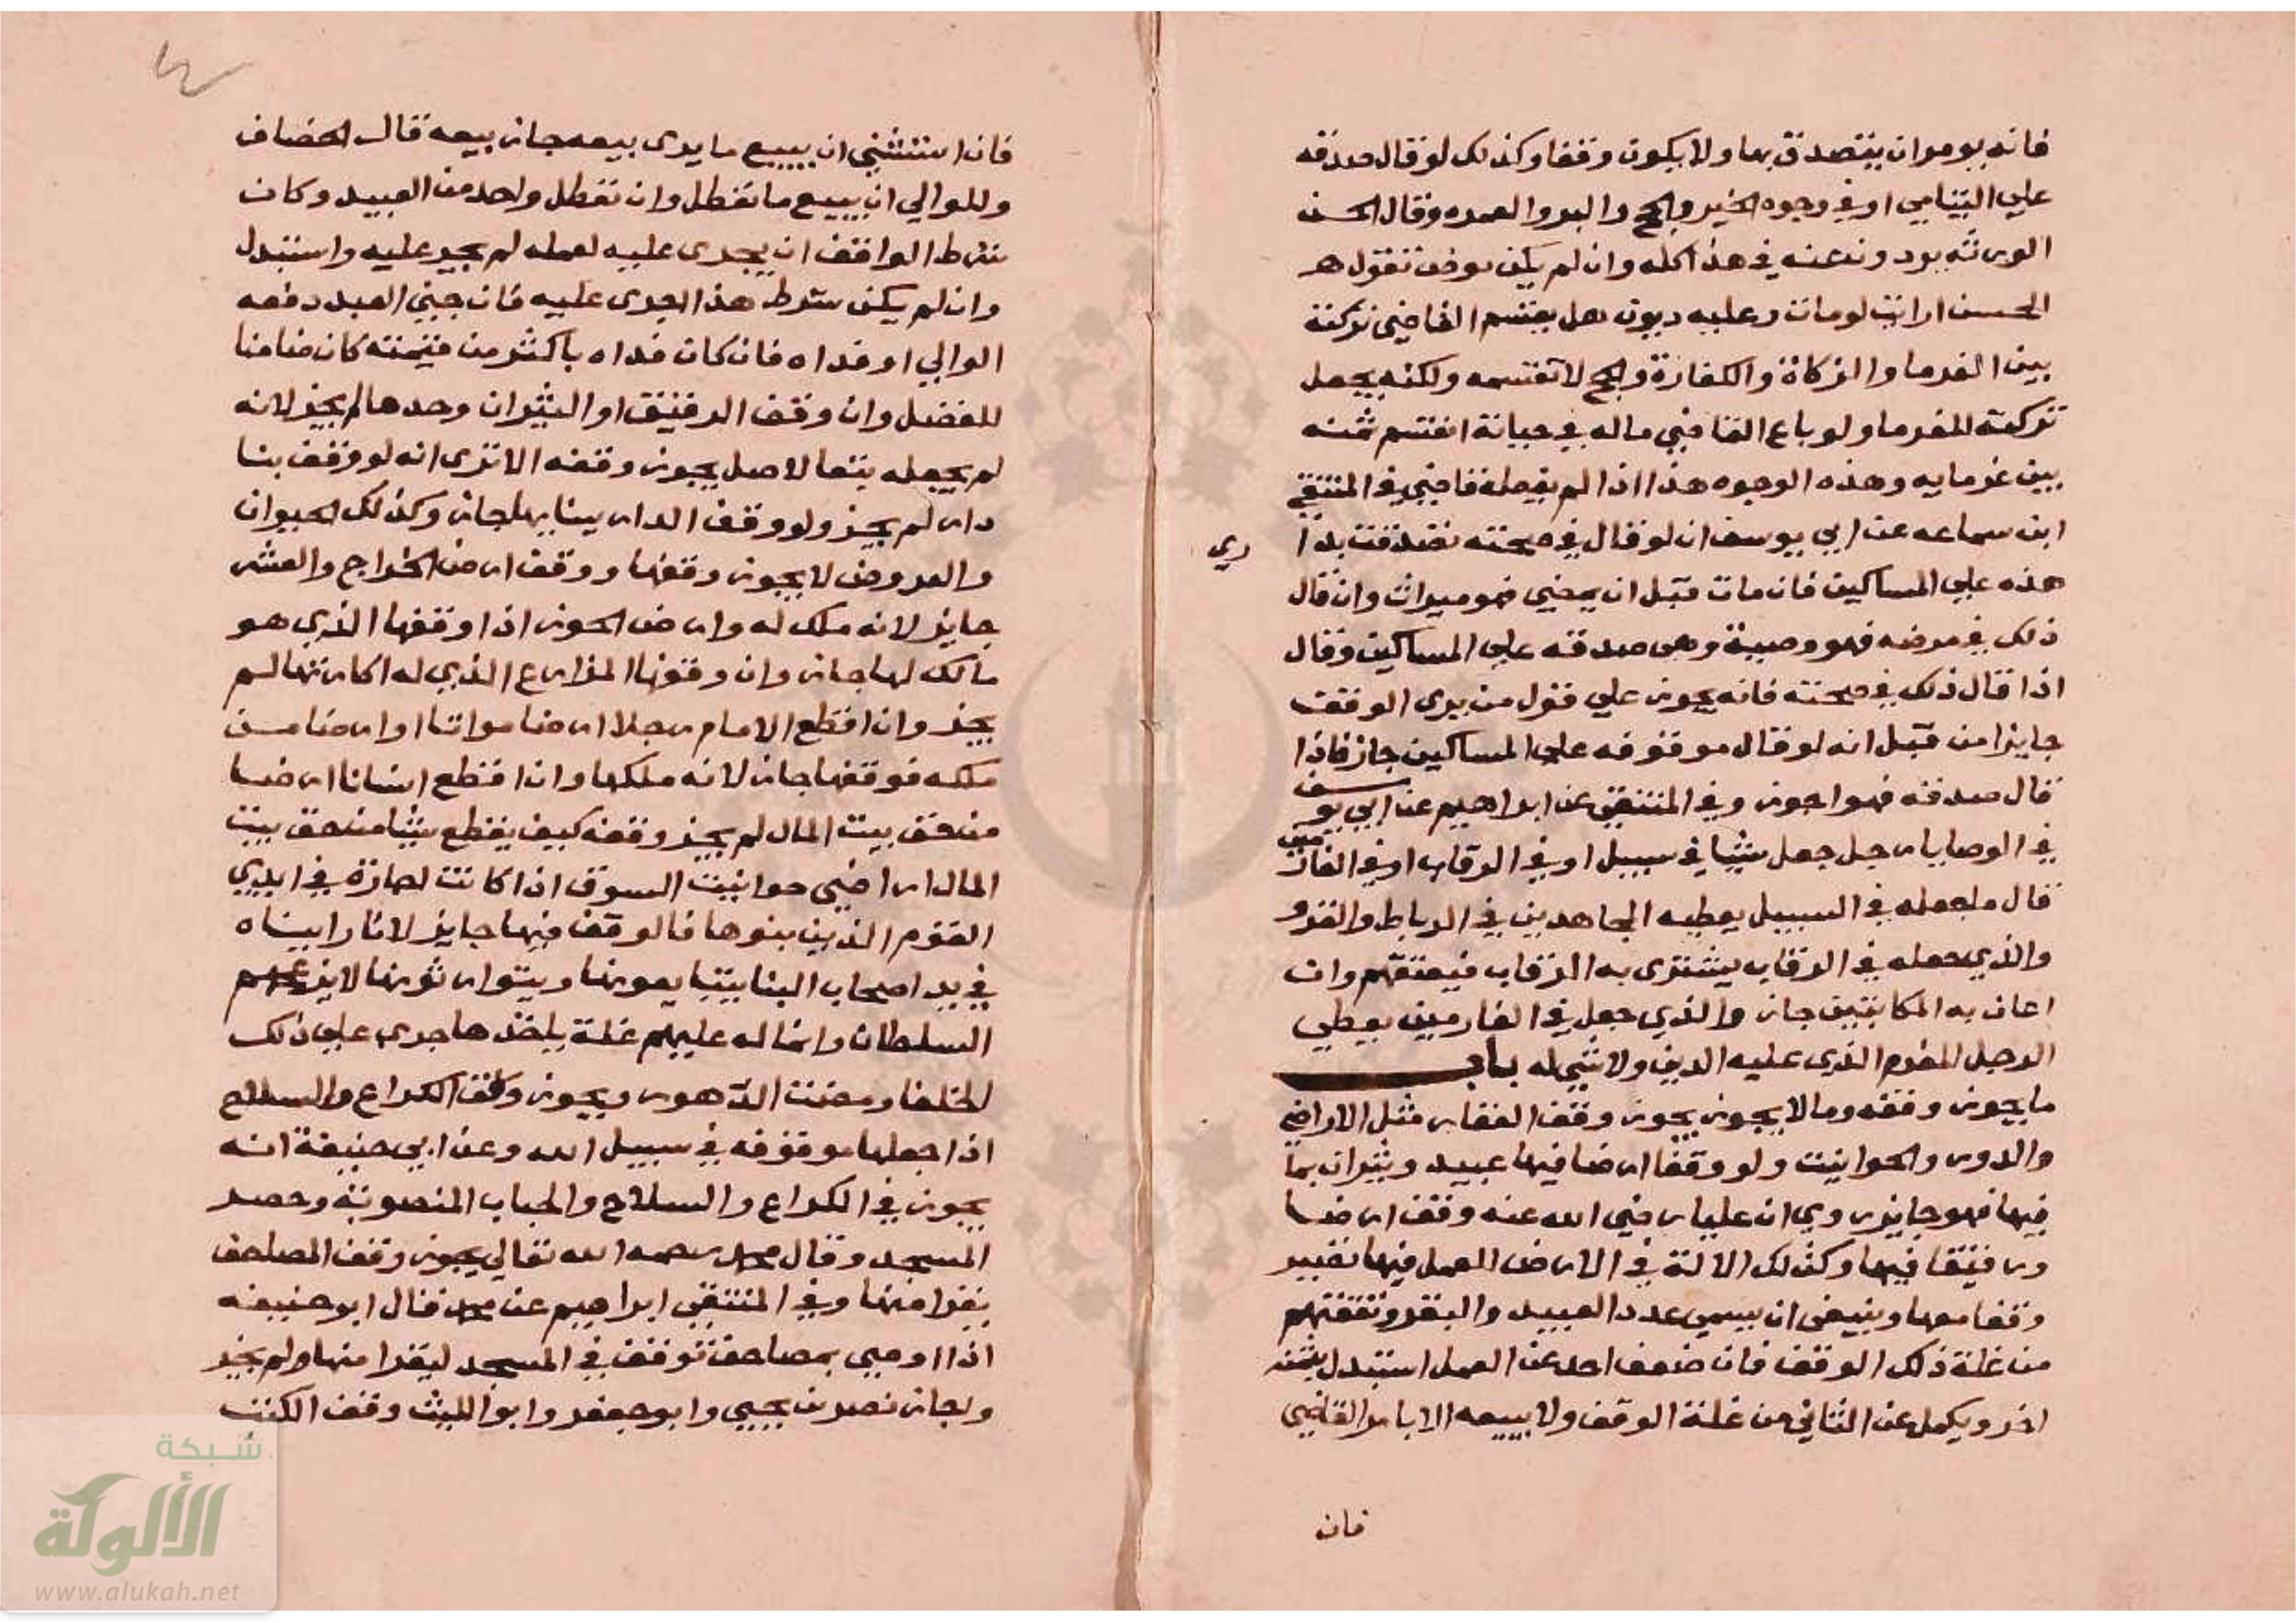 فانه يومر ان يتصدق بها ولا يكون وقفا وكذلك لو قال صدقه
علي اليتامي او في وجوه الخير والحج والبر والعمره وقال الحسن
الورثه يود ونه عنه في هذا كله وان لم يكن يوخذ بقول هـ
الحسن ارايت لو مات وعليه ديون هل يقسم القاضي تركته
بين الغرما والزكاة والكفارة والحج لا تقسمه ولكنه يجعل
تركته للغرما ولو باع القاضي ماله في حياته اقتسم ثمنه
بين غرمايه وهذه الوجوه هذا اذا لم يقبضه قاضي في المنتقي
ابن سماعه عن ابي يوسف ان لو قال في صحته تصدقت بدا
ري
هذه علي المساكين فان مات قبل ان يمضي فهو ميراث وان قال
ذلك في مرضه فهو وصية وهي صدقه علي المساكين وقال
اذا قال ذلك في صحته فانه يجوز علي قول من يري الوقف
جايزا من قبل انه لو قال موقوفه علي المساكين جاز فاذا
قال صدقه فهو اجوز وفي المنتقي عن ابراهيم عن ابي يوسف
في الوصايا رجل جعل شيا في سبيل او في الرقاب او في الغارمين
قال ما جعله في السبيل يعطيه المجاهدين في الرباط والغزو
والذي جعله في الرقاب يشتري به الرقاب فيعتقهم وان
اعان به المكاتبين جاز والذي جعل في الغارمين يعطي
الرجل المغرم الذي عليه الدين ولا شي له باب
ما يجوز وقفه وما لا يجوز يجوز وقف العقار مثل الاراضي
والدور والحوانيت ولو وقف ارضا فيها عبيد وثيران بما
فيها فهو جايز روي ان عليا رضي الله عنه وقف ارضا
ورقيقا فيها وكذلك الالة في الارض للعمل فيها تصير
وقفا معها وينبغي ان يسمي عدد العبيد والبقر ونفقتهم
من غلة ذلك الوقف فان ضعف احد عن العمل استبدل بثمنه
اخر ويكمل عن الثاني من غلة الوقف ولا يبيعه الا بامر القاضي
فان
فان استثني ان يبيع ما يري بيعه جاز بيعه قال الخصاف
وللوالي ان يبيع ما تعطل وان تعطل واحد من العبيد وكان
شرط الواقف ان يجري عليه لعمله لم يجر عليه واستبدل
وان لم يكن شرط هذا اجري عليه فان جني العبد دفعه
الوالي او فداه فان كان فداه باكثر من قيمته كان ضامنا
للفضل وان وقف الرقيق او الثيران وحدها لم يجز لانه
لم يجعله تبعا لاصل يجوز وقفه الا تري انه لو وقف بنا
دار لم يجز ولو وقف الدار ببنايها جاز وكذلك الحيوان
والعروض لا يجوز وقفها ووقف ارض الخراج والعشر
جايز لانه ملك له وارض الحوز اذا وقفها الذي هو
مالك لها جاز وان وقفها المزارع الذي له اكارتها لم
يجز وان اقطع الامام رجلا ارضا مواتا او ارضا من
ملكه فوقفها جاز لانه ملكها وان اقطع انسانا ارضا
من حق بيت المال لم يجز وقفه كيف يقطع شيا من حق بيت
المال اراضي حوانيت السوق اذا كانت اجارة في ايدي
القوم الذين بنوها فالوقف فيها جايز لانا رايناه
في يد اصحاب البنا يتبايعونها ويتوارثونها لا يزعجهم
السلطان وانما له عليهم غلة ياخذها جري علي ذلك
الخلفا ومضت الدهور ويجوز وقف الكراع والسلاح
اذا جعلها موقوفه في سبيل الله وعن ابي حنيفة انه
يجوز في الكراع والسلاح والجباب المنصوبة وحصر
المسجد وقال محمد رحمه الله تعالي يجوز وقف المصاحف
يقرا منها وفي المنتقي ابراهيم عن محمد قال ابو حنيفه
اذا اوصي بمصاحف توقف في المسجد ليقرا منها لم يجز
واجاز نصر بن يحيي وابو جعفر وابو الليث وقف الكتب
شبكة
الألوكة
www.alukah.net